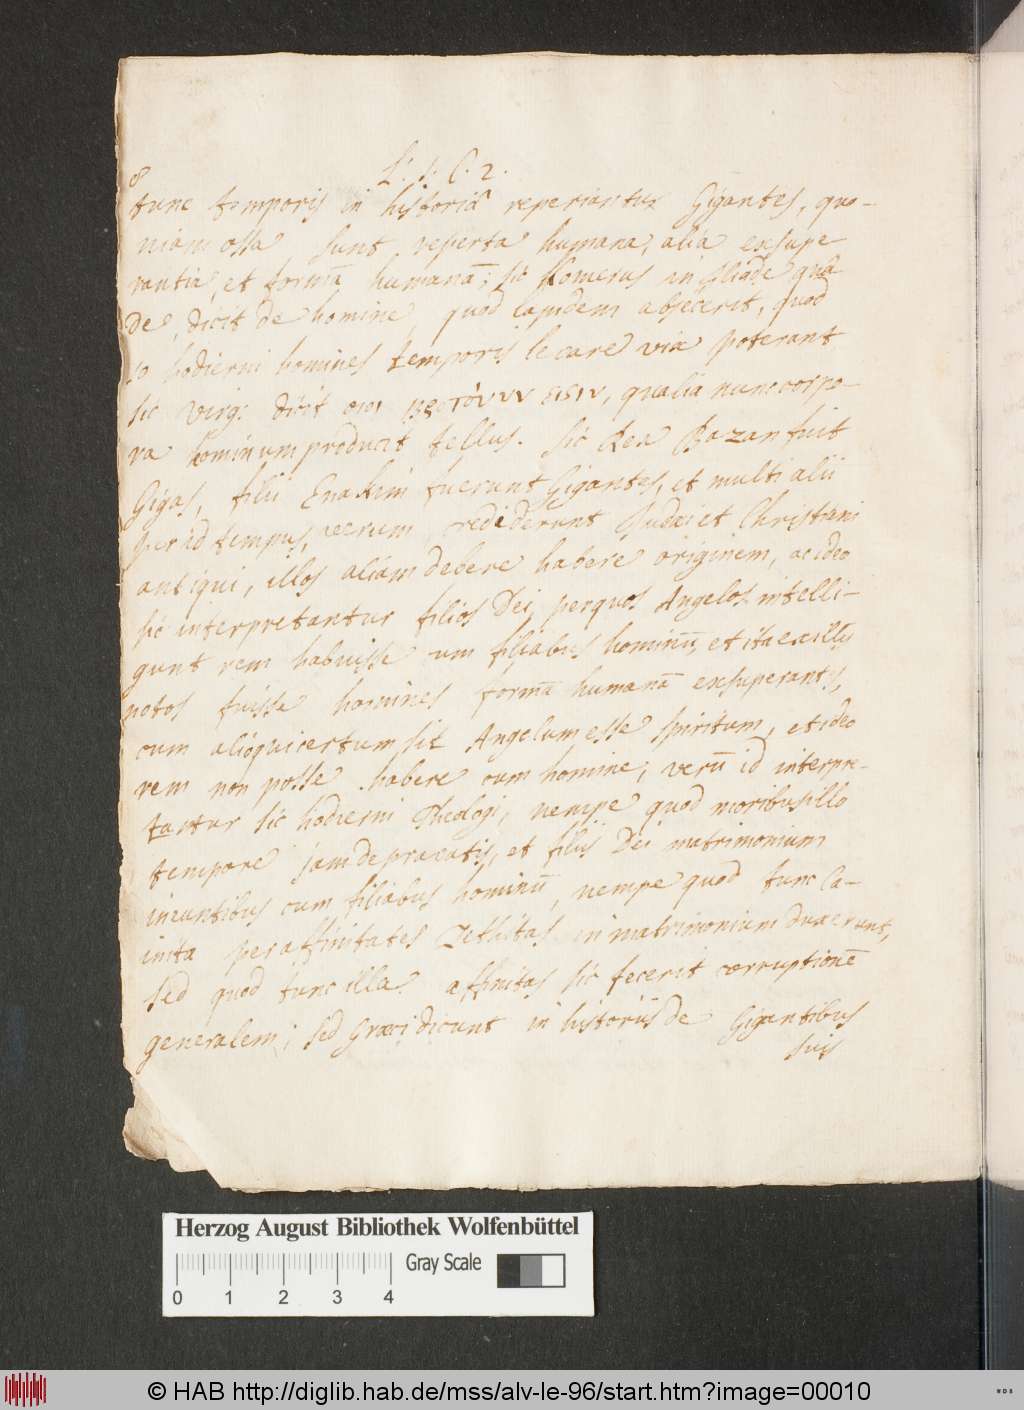 8
L. 1. C. 2.
tunc temporis in historiâ reperiantur Gigantes, quo-
niam ossa sunt reperta humana, alia exsupe
rantia, et formā humanā; sic Homerus in Iliade quâ
de, dicit de homine, quod lapidem abjecerit, quod
10 hodierni homines temporis lecare via poterant
sic Virg: dicit οιοι, qualia nunc corpo-
ra hominum producit tellus. Sic Rex Bazan fuit
Gigas, filii Enakim fuerunt Gigantes, et multi alii
per id tempus, verum crediderunt Judæi et Christiani
antiqui, illos aliam debere habere originem, ac ideo
sic interpretantur filios Dei, per quos Angelos intelli-
gunt rem habuisse cum filiabus hominū, et ita ex illis
notos fuisse homines formā humanā exsuperantes,
cum alioqui certum sit Angelum esse spiritum, et ideo
rem non posse habere cum homine; verū id interpre-
tantur sic hodierni Theologi, nempe quod moribus illo
tempore jam depravatis, et filiis Dei matrimonium
ineuntibus cum filiabus hominū, nempe quod tunc Ca-
inita per affinitates Sethitas in matrimonium duxerunt,
sed quod tunc illa affinitas sic fecerit corruptionē
generalem; sed Græci dicunt in historiis de Gigantibus
suis
Herzog August Bibliothek Wolfenbüttel
Gray Scale
0 1 2 3 4
© HAB http://diglib.hab.de/mss/alv-le-96/start.htm?image=00010